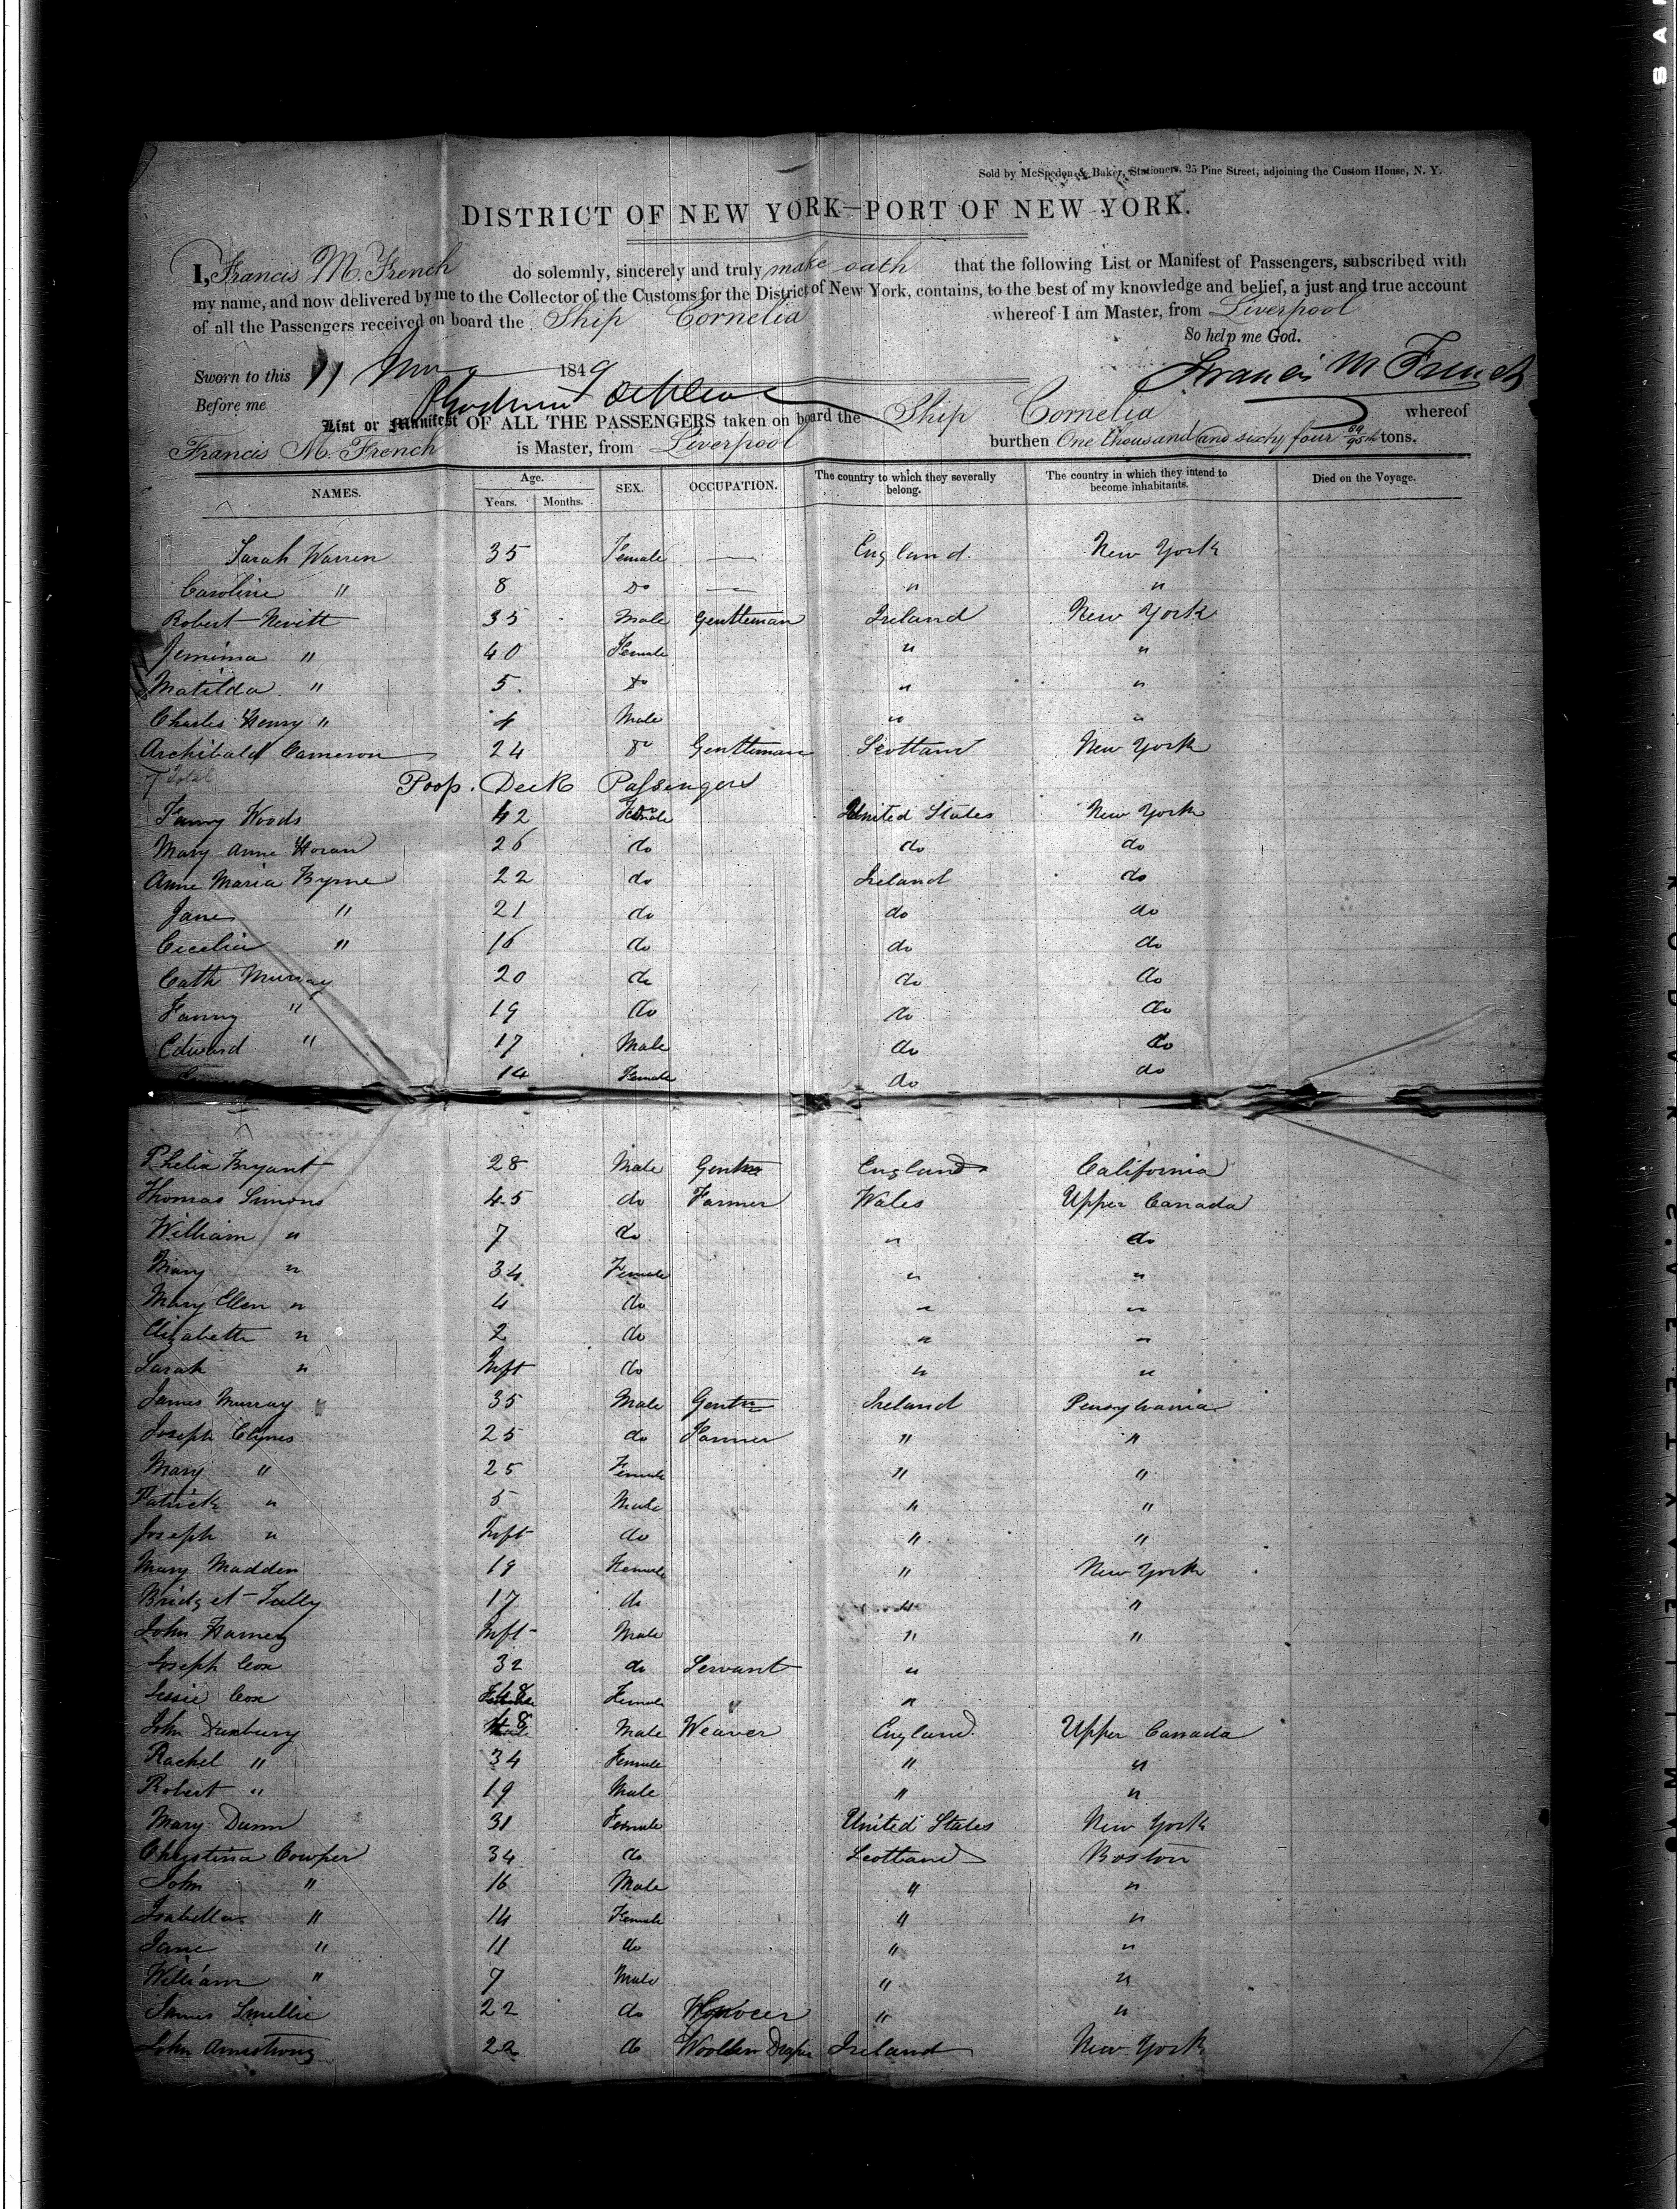 Sold by McSpedon & Baker, Stationers, 25 Pine Street, adjoining the Custom House, N. Y.
DISTRICT OF NEW YORK—PORT OF NEW YORK.
I, Francis M. French do solemnly, sincerely and truly make oath that the following List or Manifest of Passengers, subscribed with
my name, and now delivered by me to the Collector of the Customs for the District of New York, contains, to the best of my knowledge and belief, a just and true account
of all the Passengers received on board the Ship Cornelia whereof I am Master, from Liverpool
So help me God.
Sworn to this 1849 Francis M French
Before me
List or Manifest OF ALL THE PASSENGERS taken on board the Ship Cornelia whereof
Francis M. French is Master, from Liverpool burthen One thousand and sixty four 95th tons.
NAMES. Age. Years. Months. SEX. OCCUPATION. The country to which they severally belong. The country in which they intend to become inhabitants. Died on the Voyage.
Sarah Warren 35 Female — England. New York
Caroline " 8 Do — " "
Robert Nevitt 35 Male Gentleman Ireland New York
Jemima " 40 Female " "
Matilda " 5. Do " "
Charles Henry " 4 Male " "
Archibald Cameron 24 Do Gentleman Scotland New York
7 Total
Poop. Deck Passengers
Fanny Woods 42 Female United States New York
Mary Anne Horan 26 do do do
Anne Maria Byrne 22 do Ireland do
Jane " 21 do do do
Cecelia " 16 do do do
Cath Murray 20 do do do
Fanny " 19 do do do
Edward " 17 Male do do
14 Female do do
Phelix Bryant 28 Male Gentn England California
Thomas Simons 45 do Farmer Wales Upper Canada
William " 7 do " do
Mary " 34 Female " "
Mary Ellen " 4 do " "
Elizabeth " 2 do " "
Sarah " Inft do " "
James Murray 35 Male Gentn Ireland Pensylvania
Joseph Clynes 25 do Farmer " "
Mary " 25 Female " "
Patrick " 5 Male " "
Joseph " Inft do " "
Mary Madden 19 Female " New York
Bridget Tully 17 do " "
John Harney Inft Male " "
Joseph Cox 32 do Servant "
Jessie Cox Female " "
John Duxbury 48 Male Weaver England. Upper Canada
Rachel " 34 Female " "
Robert " 19 Male " "
Mary Dunn 31 Female United States New York
Christina Cowper 34 do Scotland Boston
John " 16 Male " "
Isabella " 14 Female " "
Jane " 11 do " "
William " 7 Male " "
James Smellie 22 do Grocer " "
John Armstrong 22 do Woollen Draper Ireland New York